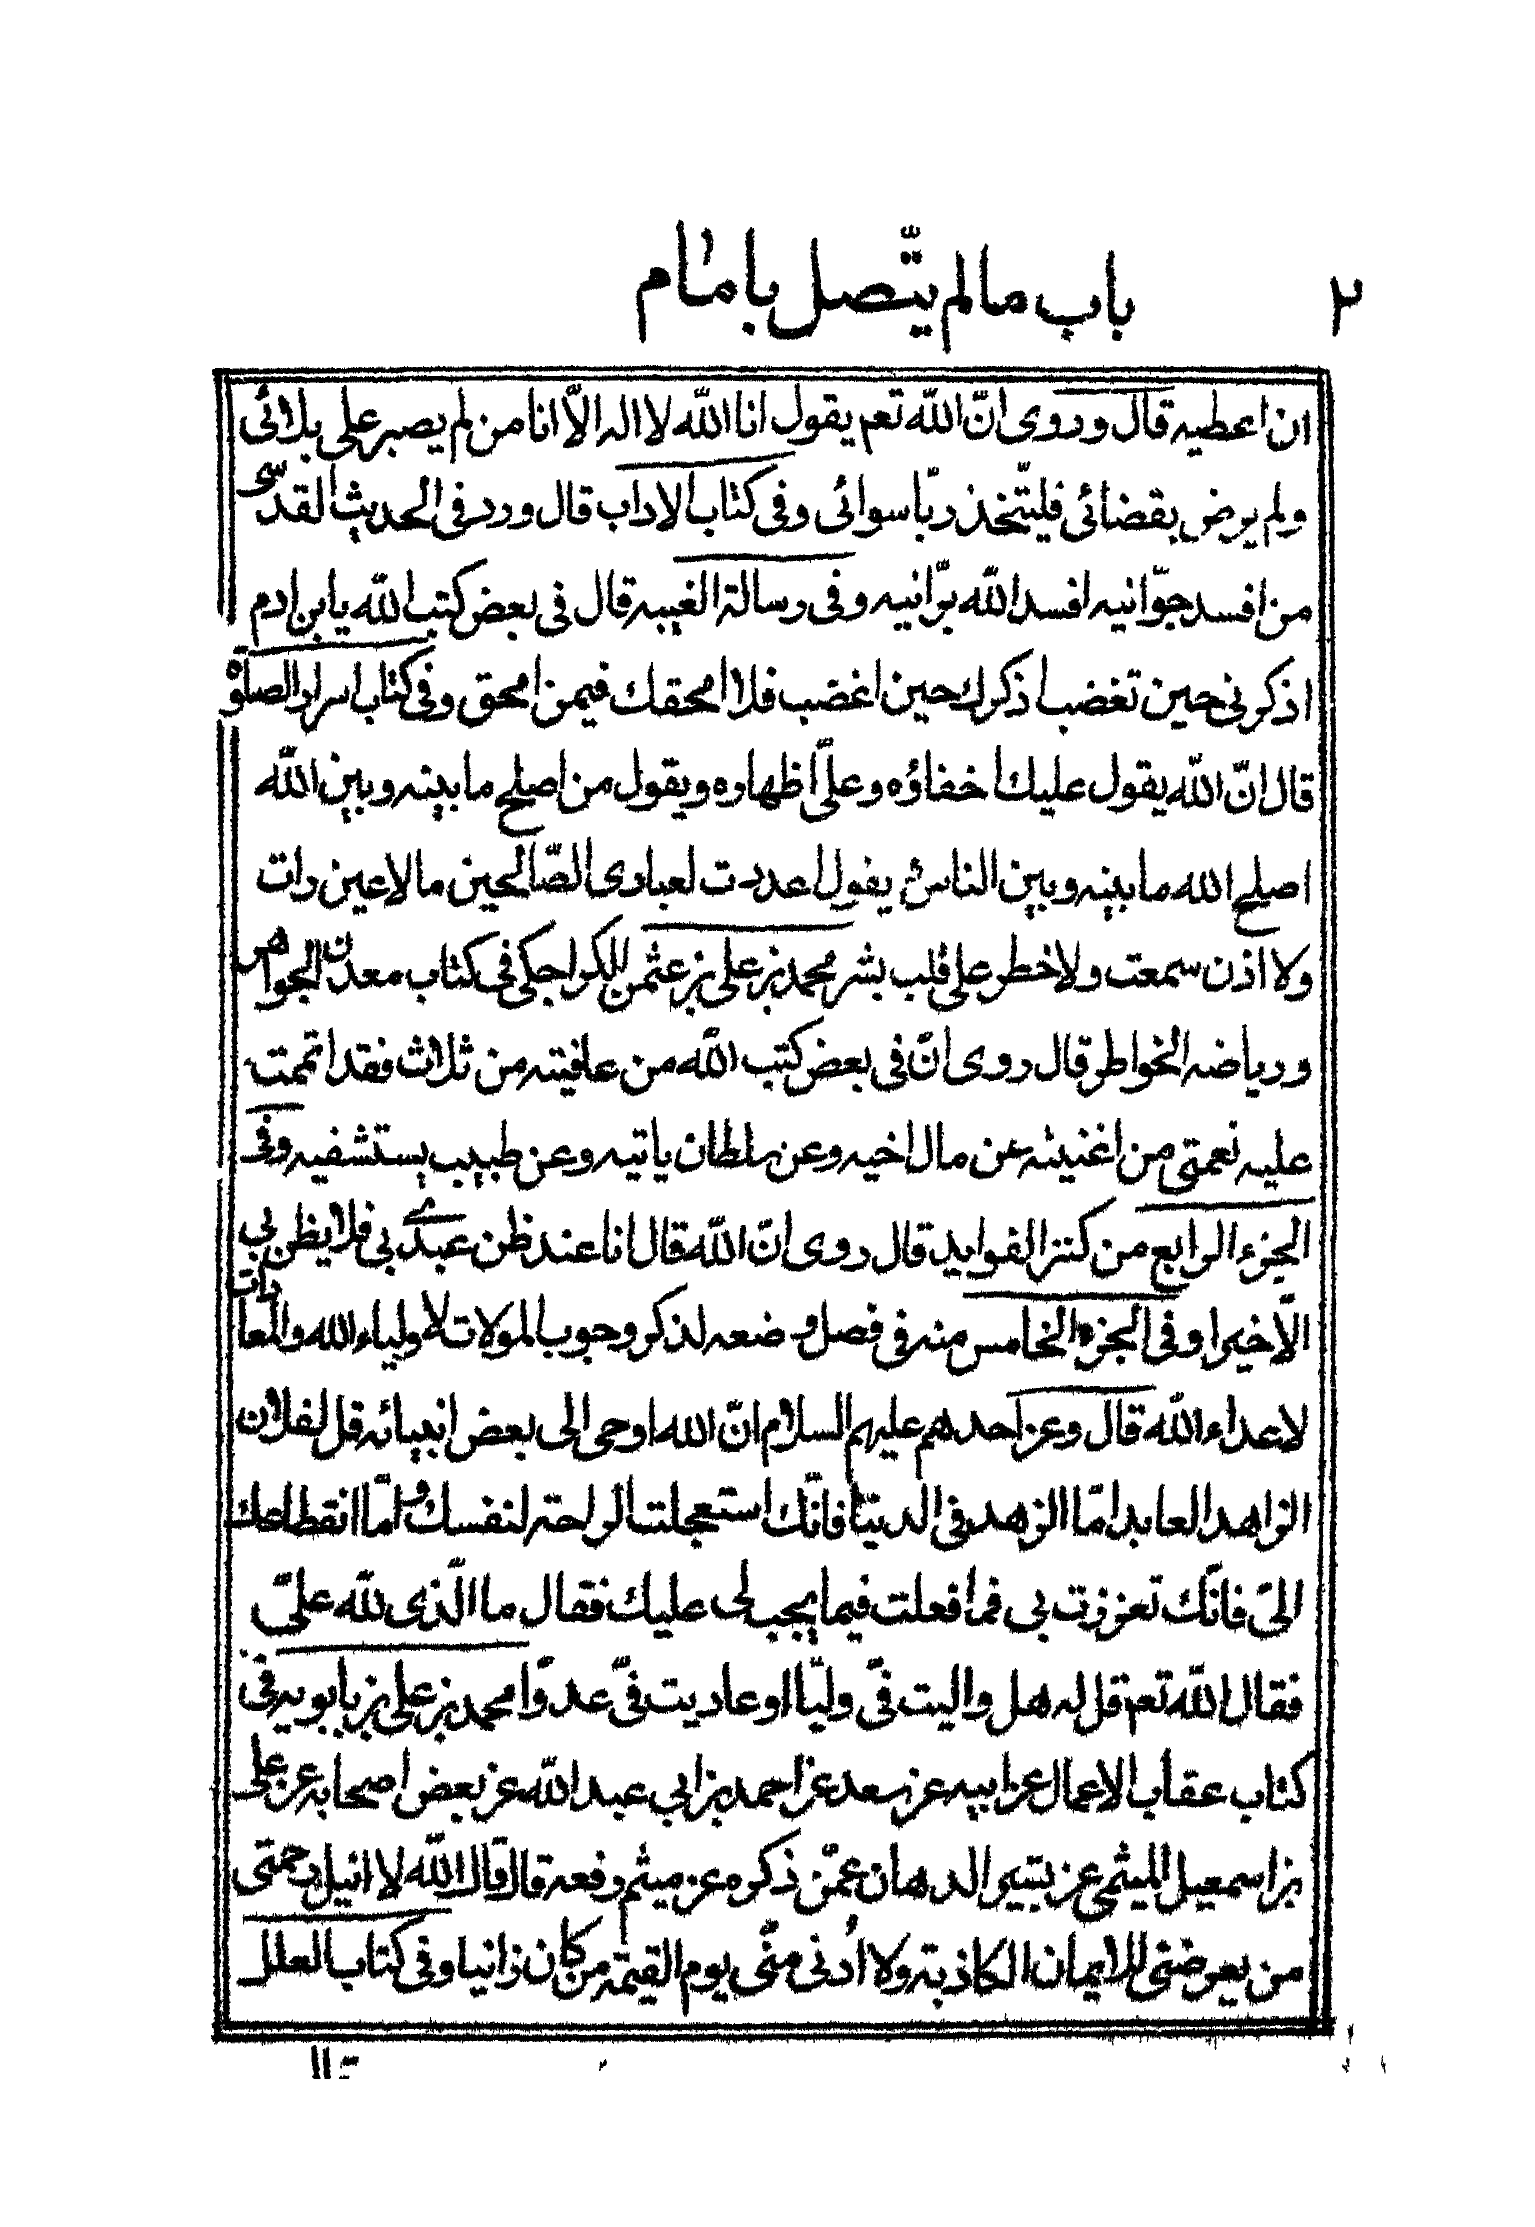 ٢
باب مالم يتّصل بامام
ان اعطيه قال وروى انّ اللّه تعم يقول انا اللّه لا اله الّا انا من لم يصبر على بلائى
ولم يرض بقضائى فليتّخذ ربّا سوائى وفى كتاب الاداب قال ورد فى الحديث القدسّى
من افسد جوّانيه افسد اللّه برّانيه وفى رسالة الغيبه قال فى بعض كتب اللّه يابن ادم
اذكرنى حين تغضب اذكرك حين اغضب فلا امحقك فيمن امحق وفى كتاب اسرار الصلوة
قال انّ اللّه يقول عليك خفاؤه وعلىّ اظهاره ويقول من اصلح ما بينه وبين اللّه
اصلح الله ما بينه وبين الناس يقول اعددت لعبادى الصّالحين ما لا عين رات
ولا اذن سمعت ولا خطر على قلب بشر محمد بن على بن عثمن الكراجكى فى كتاب معدن الجواهر
ورياضه الخواطر قال روى انّ فى بعض كتب اللّه من عافيته من ثلاث فقد اتممت
عليه نعمتى من اغنيته عن مال اخيه وعن سلطان ياتيه وعن طبيب يستشفيه وفى
الجزء الرابع من كنز الفوايد قال روى انّ اللّه قال انا عند ظن عبدى بى فلا يظن بى
الّا خيرا وفى الجزء الخامس منه فى فصل وضعه لذكر وجوب الموالات لاولياء الله والمعادات
لاعداء اللّه قال وعن احدهم عليهم السلام انّ الله اوحى الى بعض انبيائه قل لفلان
الزاهد العابد امّا الزهد فى الدنيا فانّك استعجلت الراحة لنفسك وامّا انقطاعك
الىّ فانّك تعززت بى فما فعلت فيما يجب لى عليك فقال ما الّذى للّه علىّ
فقال اللّه تعم قل له هل واليت فىّ وليّا او عاديت فىّ عدوّا محمد بن على بن بابويه فى
كتاب عقاب الاعمال عن ابيه عن سعد عن احمد بن ابى عبد اللّه عن بعض اصحابه عن على
بن اسمعيل الميثمى عن بشير الدهان عمّن ذكره عن ميثم رفعه قال قال اللّه لا انيل رحمتى
من يعرضنى للايمان الكاذبة ولا اُدنى منّى يوم القيمة من كان زانيا وفى كتاب العلل
قال